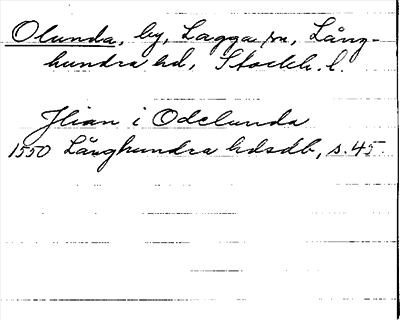 Olunda, by, Lagga sn, Lång-
hundra hd, Stockh. l.
Jlian i Odelunda
1550 Långhundra hdsdb, s. 45.